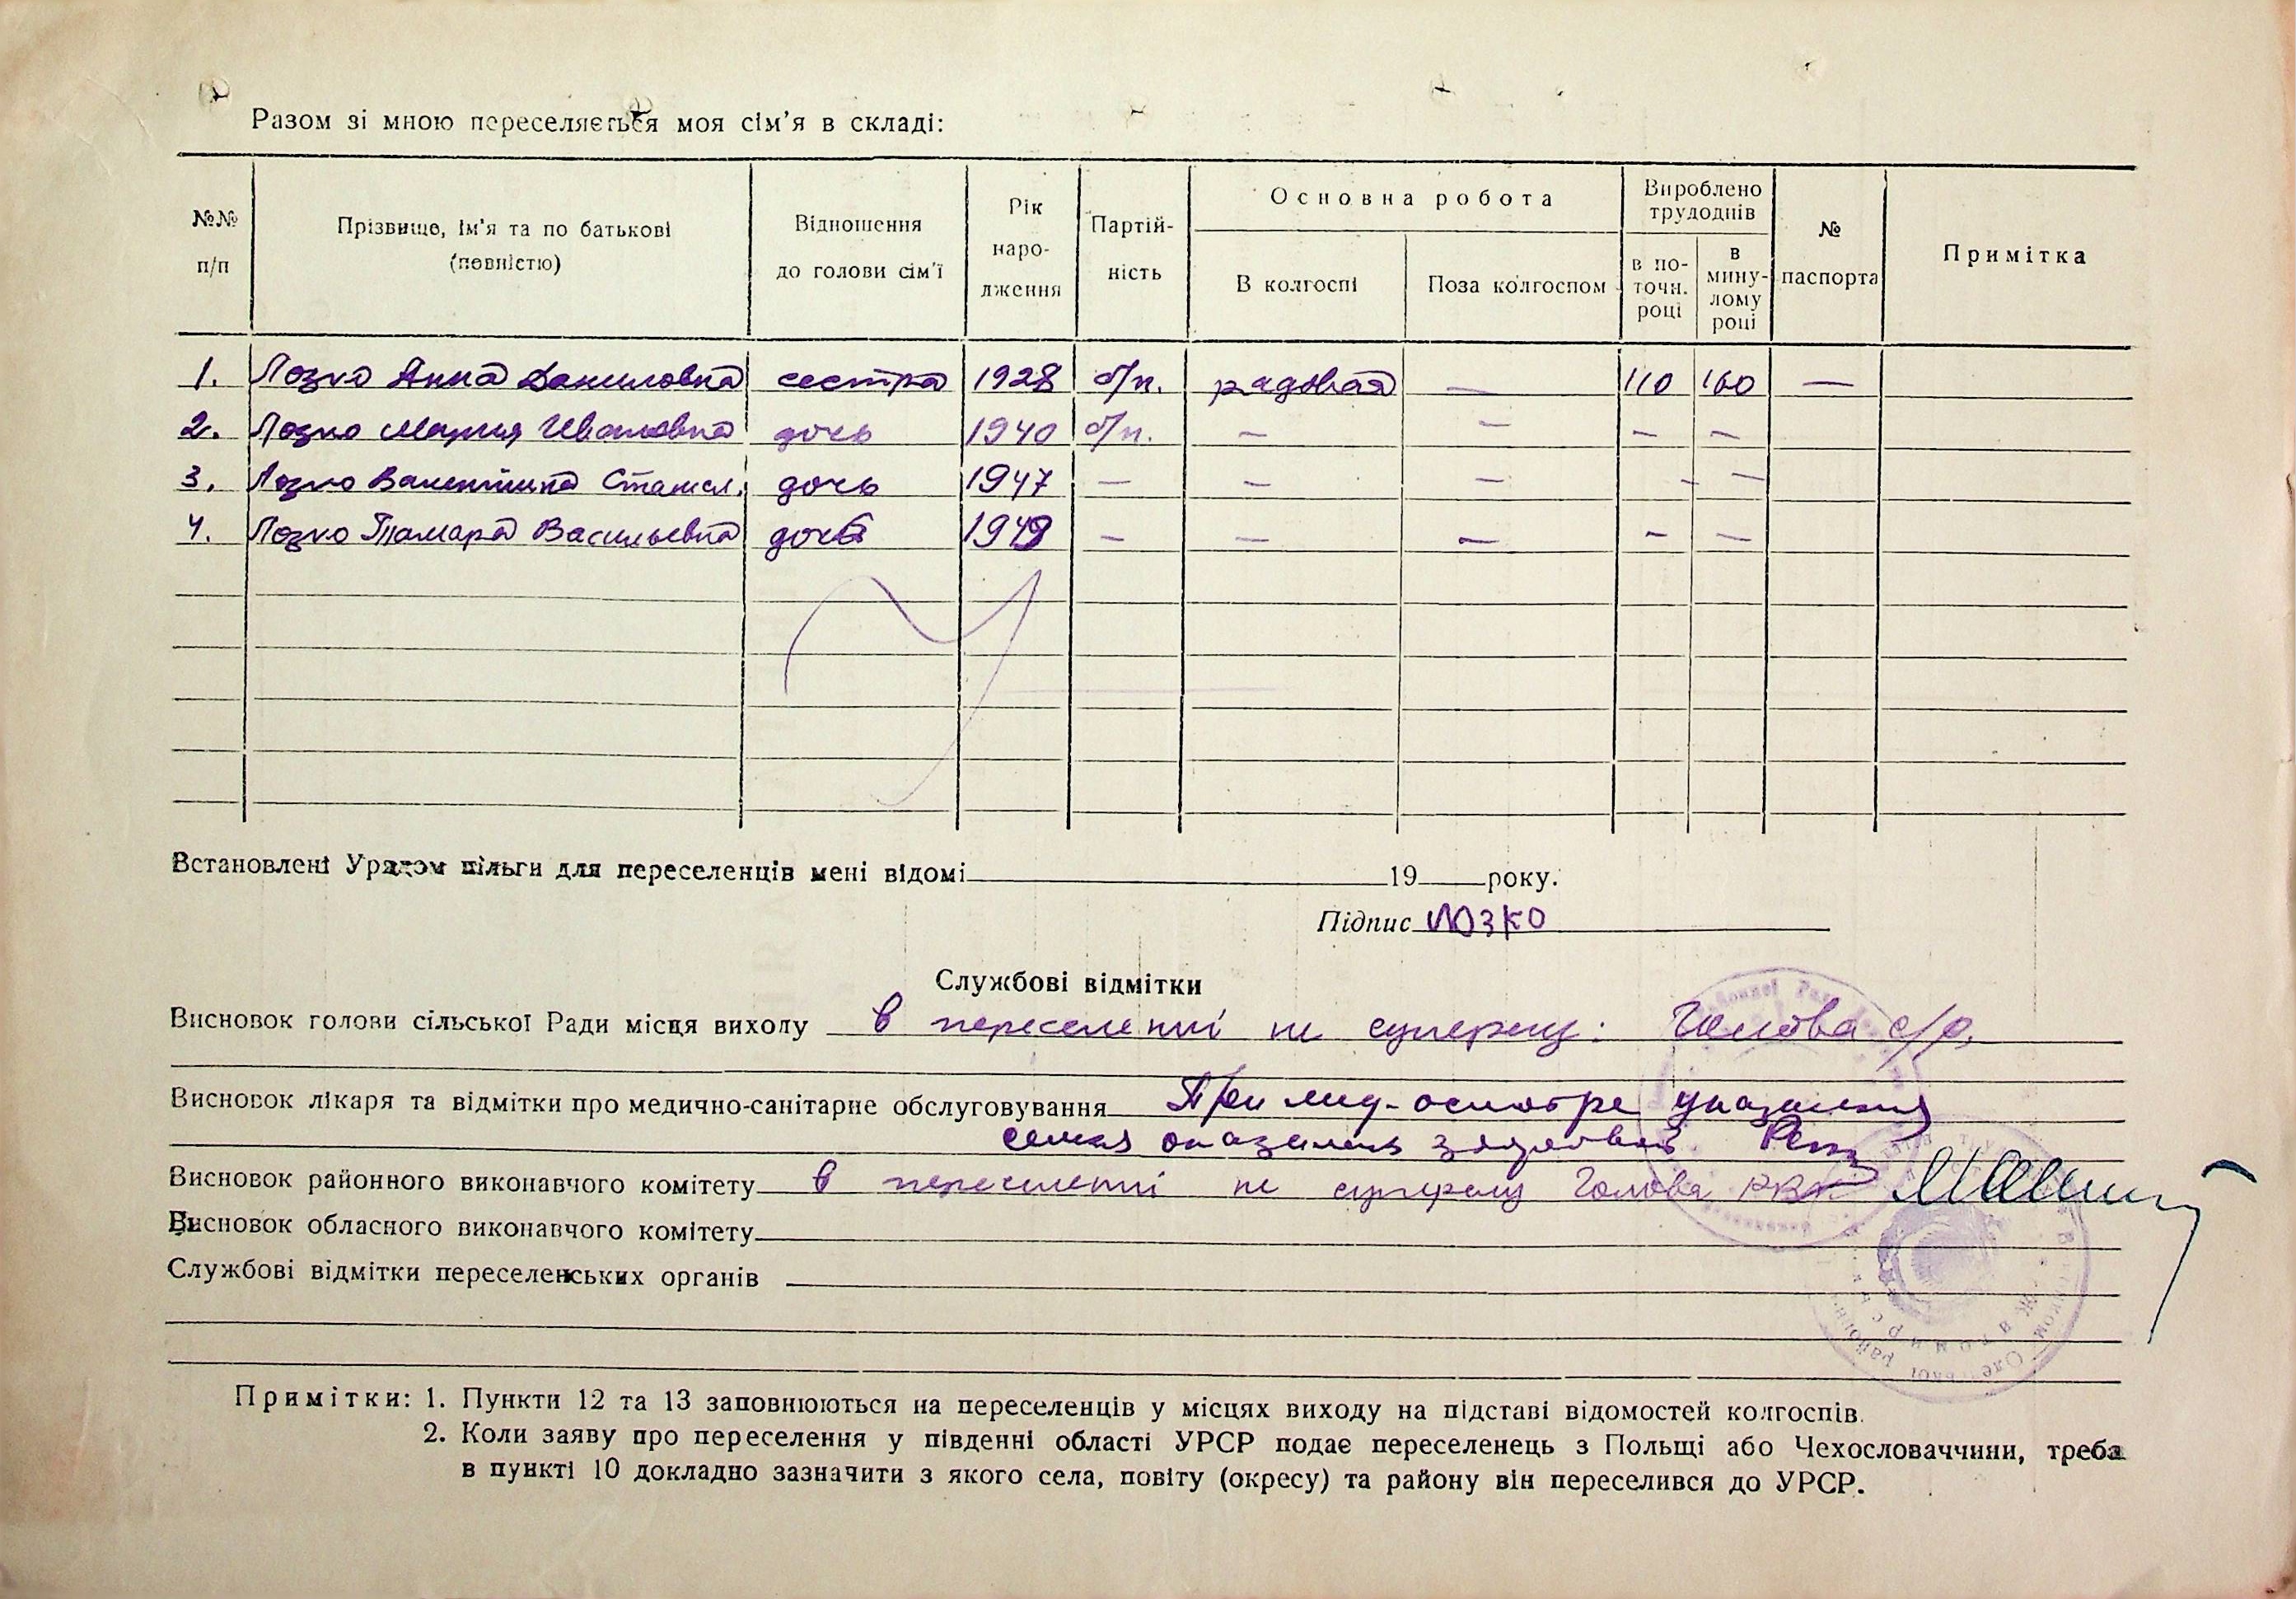 Разом зі мною переселяється моя сім'я в складі:
№№ п/п
Прізвище, ім'я та по батькові (повністю)
Відношення до голови сім'ї
Рік народження
Партійність
Основна робота
В колгоспі
Поза колгоспом
Вироблено трудоднів
в поточн. році
в минулому році
№ паспорта
Примітка
1. Лозко Анна Даниловна сестра 1928 б/п. рядовая — 110 160 —
2. Лозко Мария Ивановна дочь 1940 б/п. — — — —
3. Лозко Валентина Станисл. дочь 1947 — — — - —
4. Лозко Тамара Васильевна дочь 1949 — — — - —
Встановлені Урядом пільги для переселенців мені відомі 19 року.
Підпис Лозко
Службові відмітки
Висновок голови сільської Ради місця виходу в переселенні не суперечу: Голова с/р.
Висновок лікаря та відмітки про медично-санітарне обслуговування При мед-осмотре указанная
семья оказалась здоровой
Висновок районного виконавчого комітету в переселенні не суперечу Голова РВК
Висновок обласного виконавчого комітету
Службові відмітки переселенських органів
Примітки: 1. Пункти 12 та 13 заповнюються на переселенців у місцях виходу на підставі відомостей колгоспів.
2. Коли заяву про переселення у південні області УРСР подає переселенець з Польщі або Чехословаччини, треба
в пункті 10 докладно зазначити з якого села, повіту (окресу) та району він переселився до УРСР.